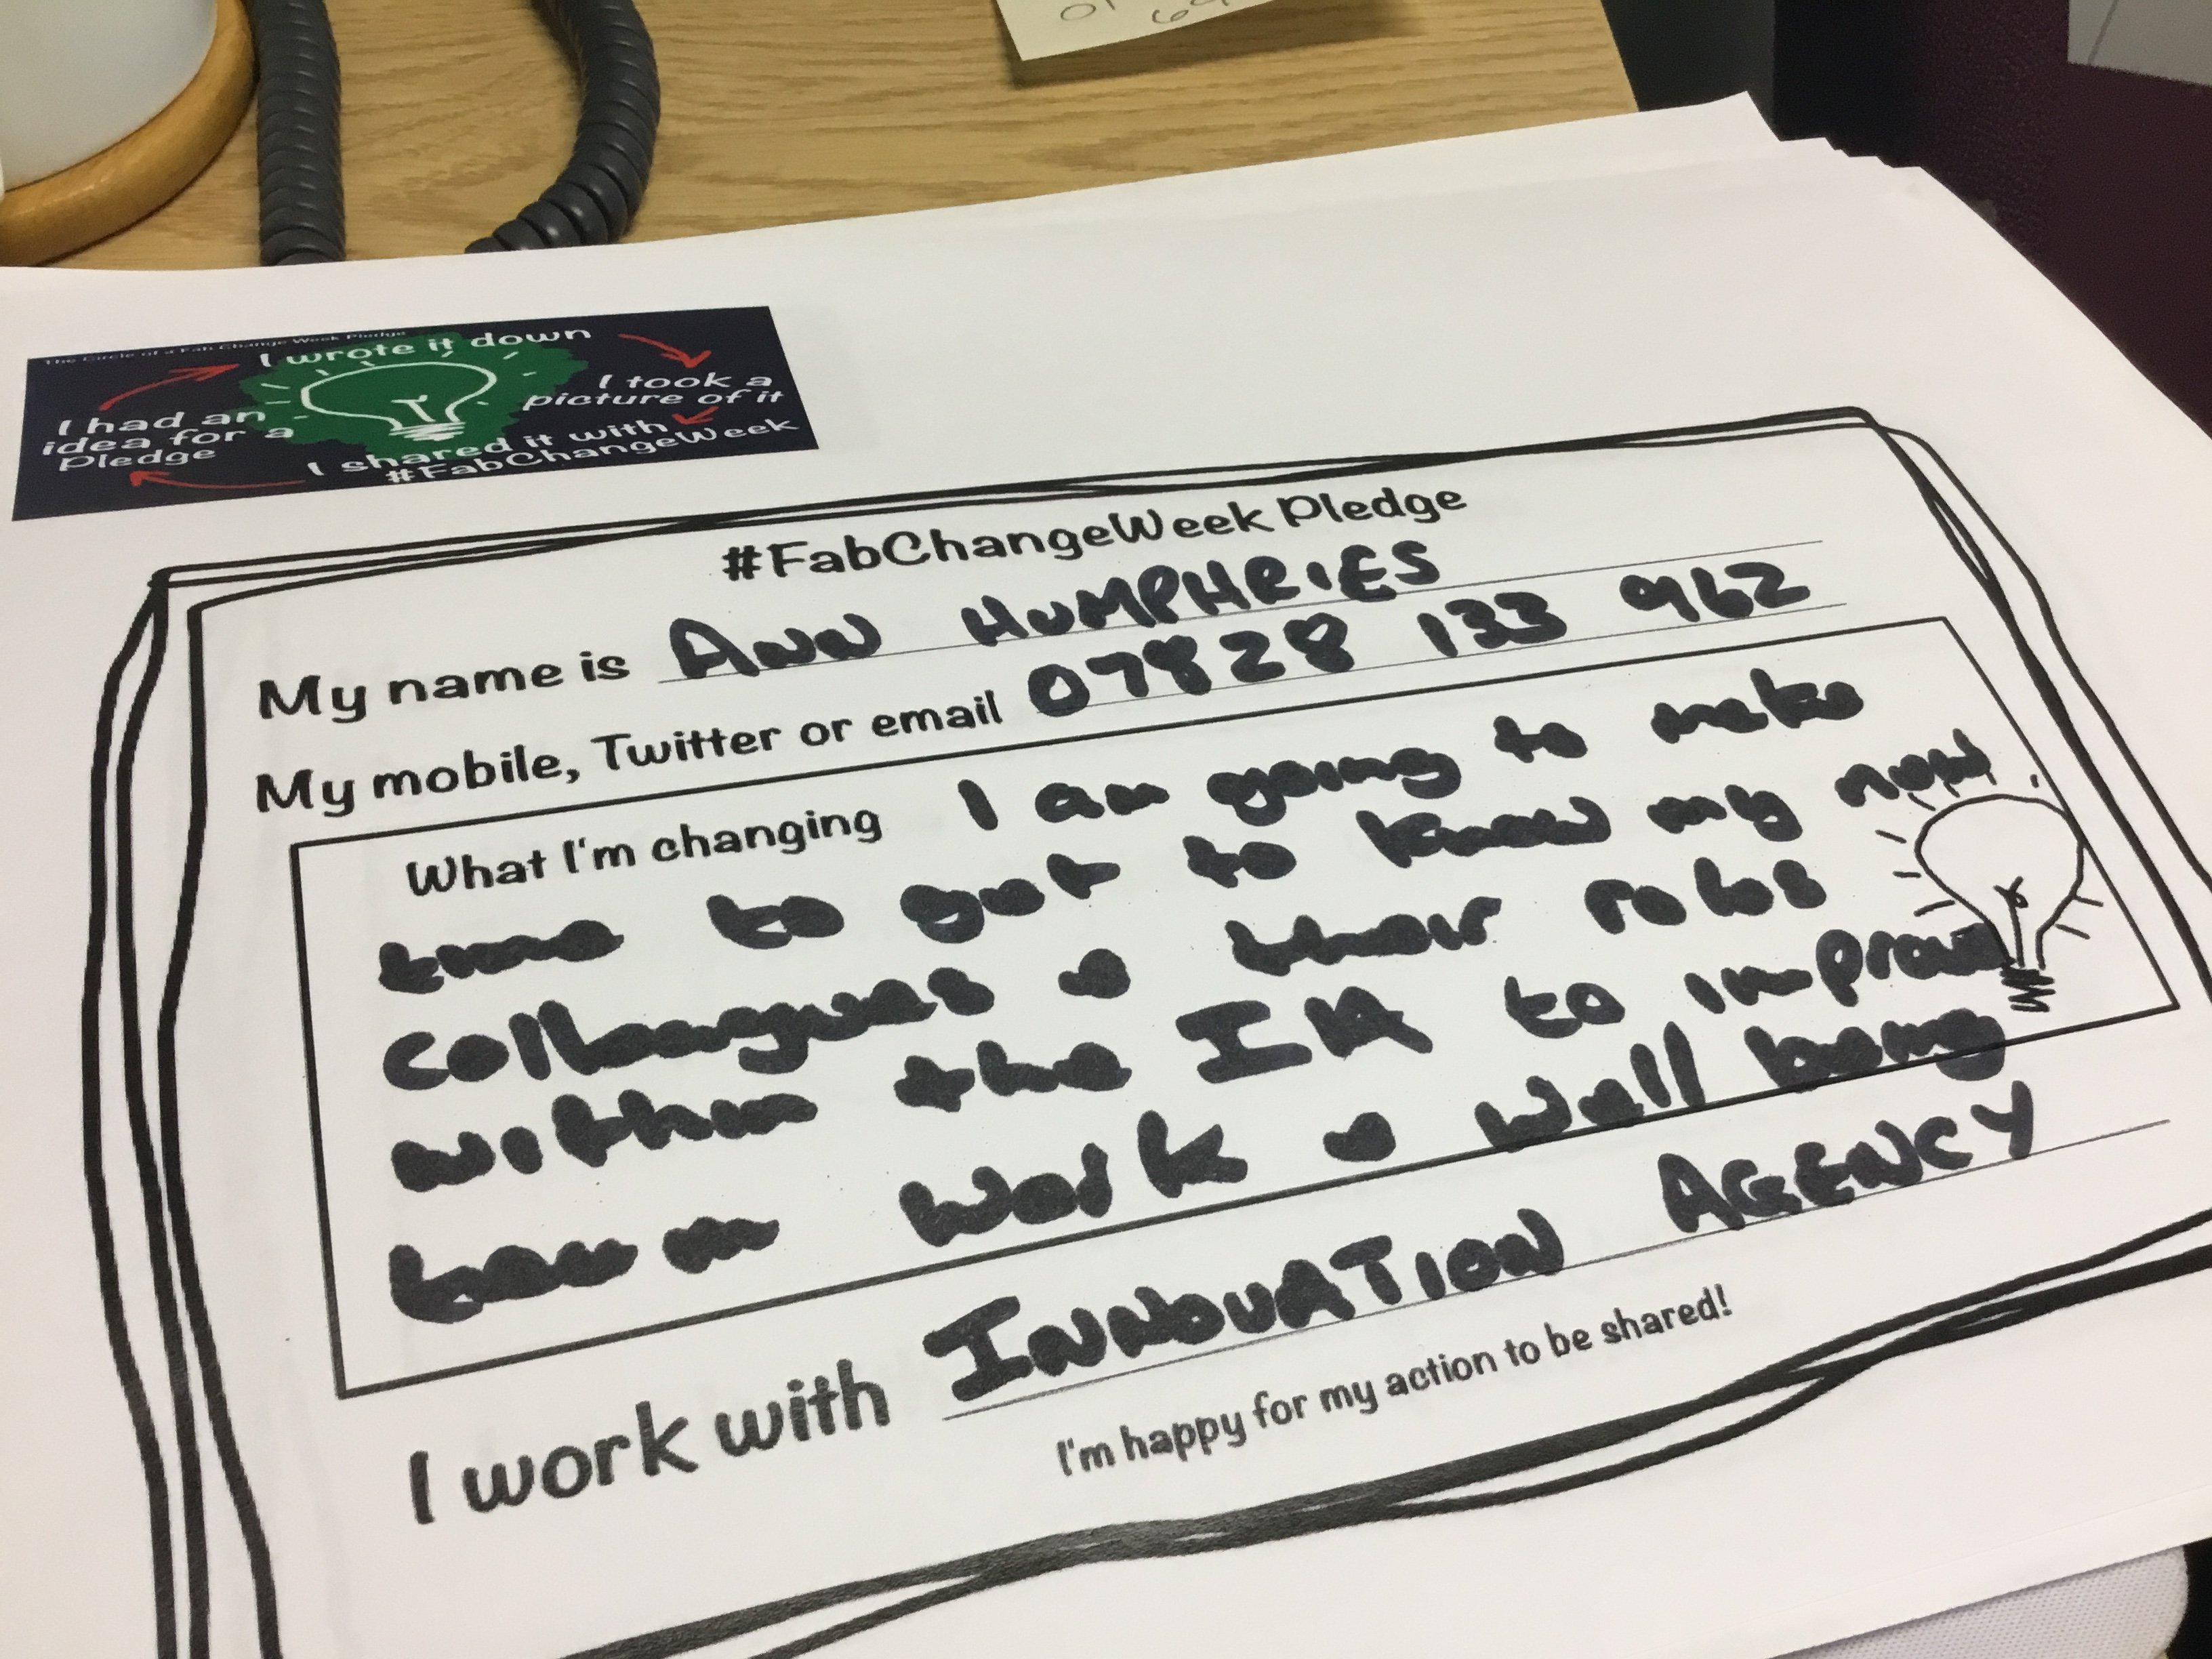 The Circle of a Fab Change Week Pledge
I wrote it down
I took a
picture of it
I shared it with
#FabChangeWeek
I had an
idea for a
Pledge
#FabChangeWeek Pledge
My name is ANN HUMPHRIES
My mobile, Twitter or email 07828 133 962
What I'm changing I am going to make
time to get to know my new
colleagues & their roles
within the IA to improve
team work & well being
I work with INNOVATION AGENCY
I'm happy for my action to be shared!